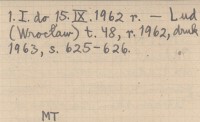 1. I. do 15. IX. 1962 r. — Lud
(Wrocław) t. 48, r. 1962, druk
1963, s. 625-626.
MT